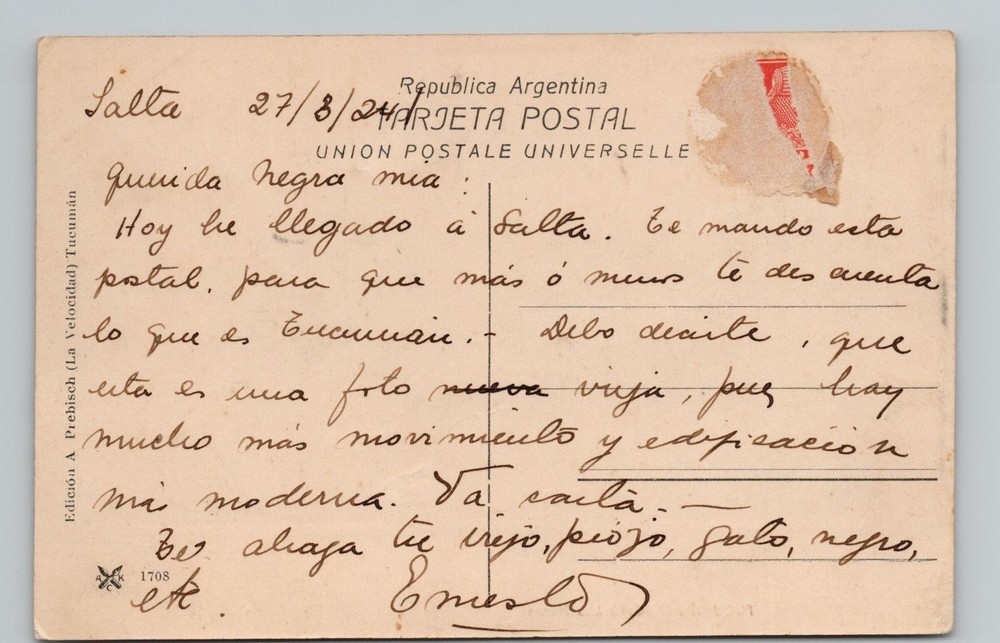 Republica Argentina
TARJETA POSTAL
UNION POSTALE UNIVERSELLE
Salta 27/3/24
Querida negra mia:
Hoy he llegado á Salta. Te mando esta
postal, para que más ó menos te des cuenta
lo que es Tucumán.- Debo decirte, que
esta es una foto nueva vieja, pues hay
mucho más movimiento y edificación
más moderna. Va carta.-
Te abraza tu viejo, piojo, gato, negro,
etc. Ernesto
Edición A. Prebisch (La Velocidad) Tucumán
1708